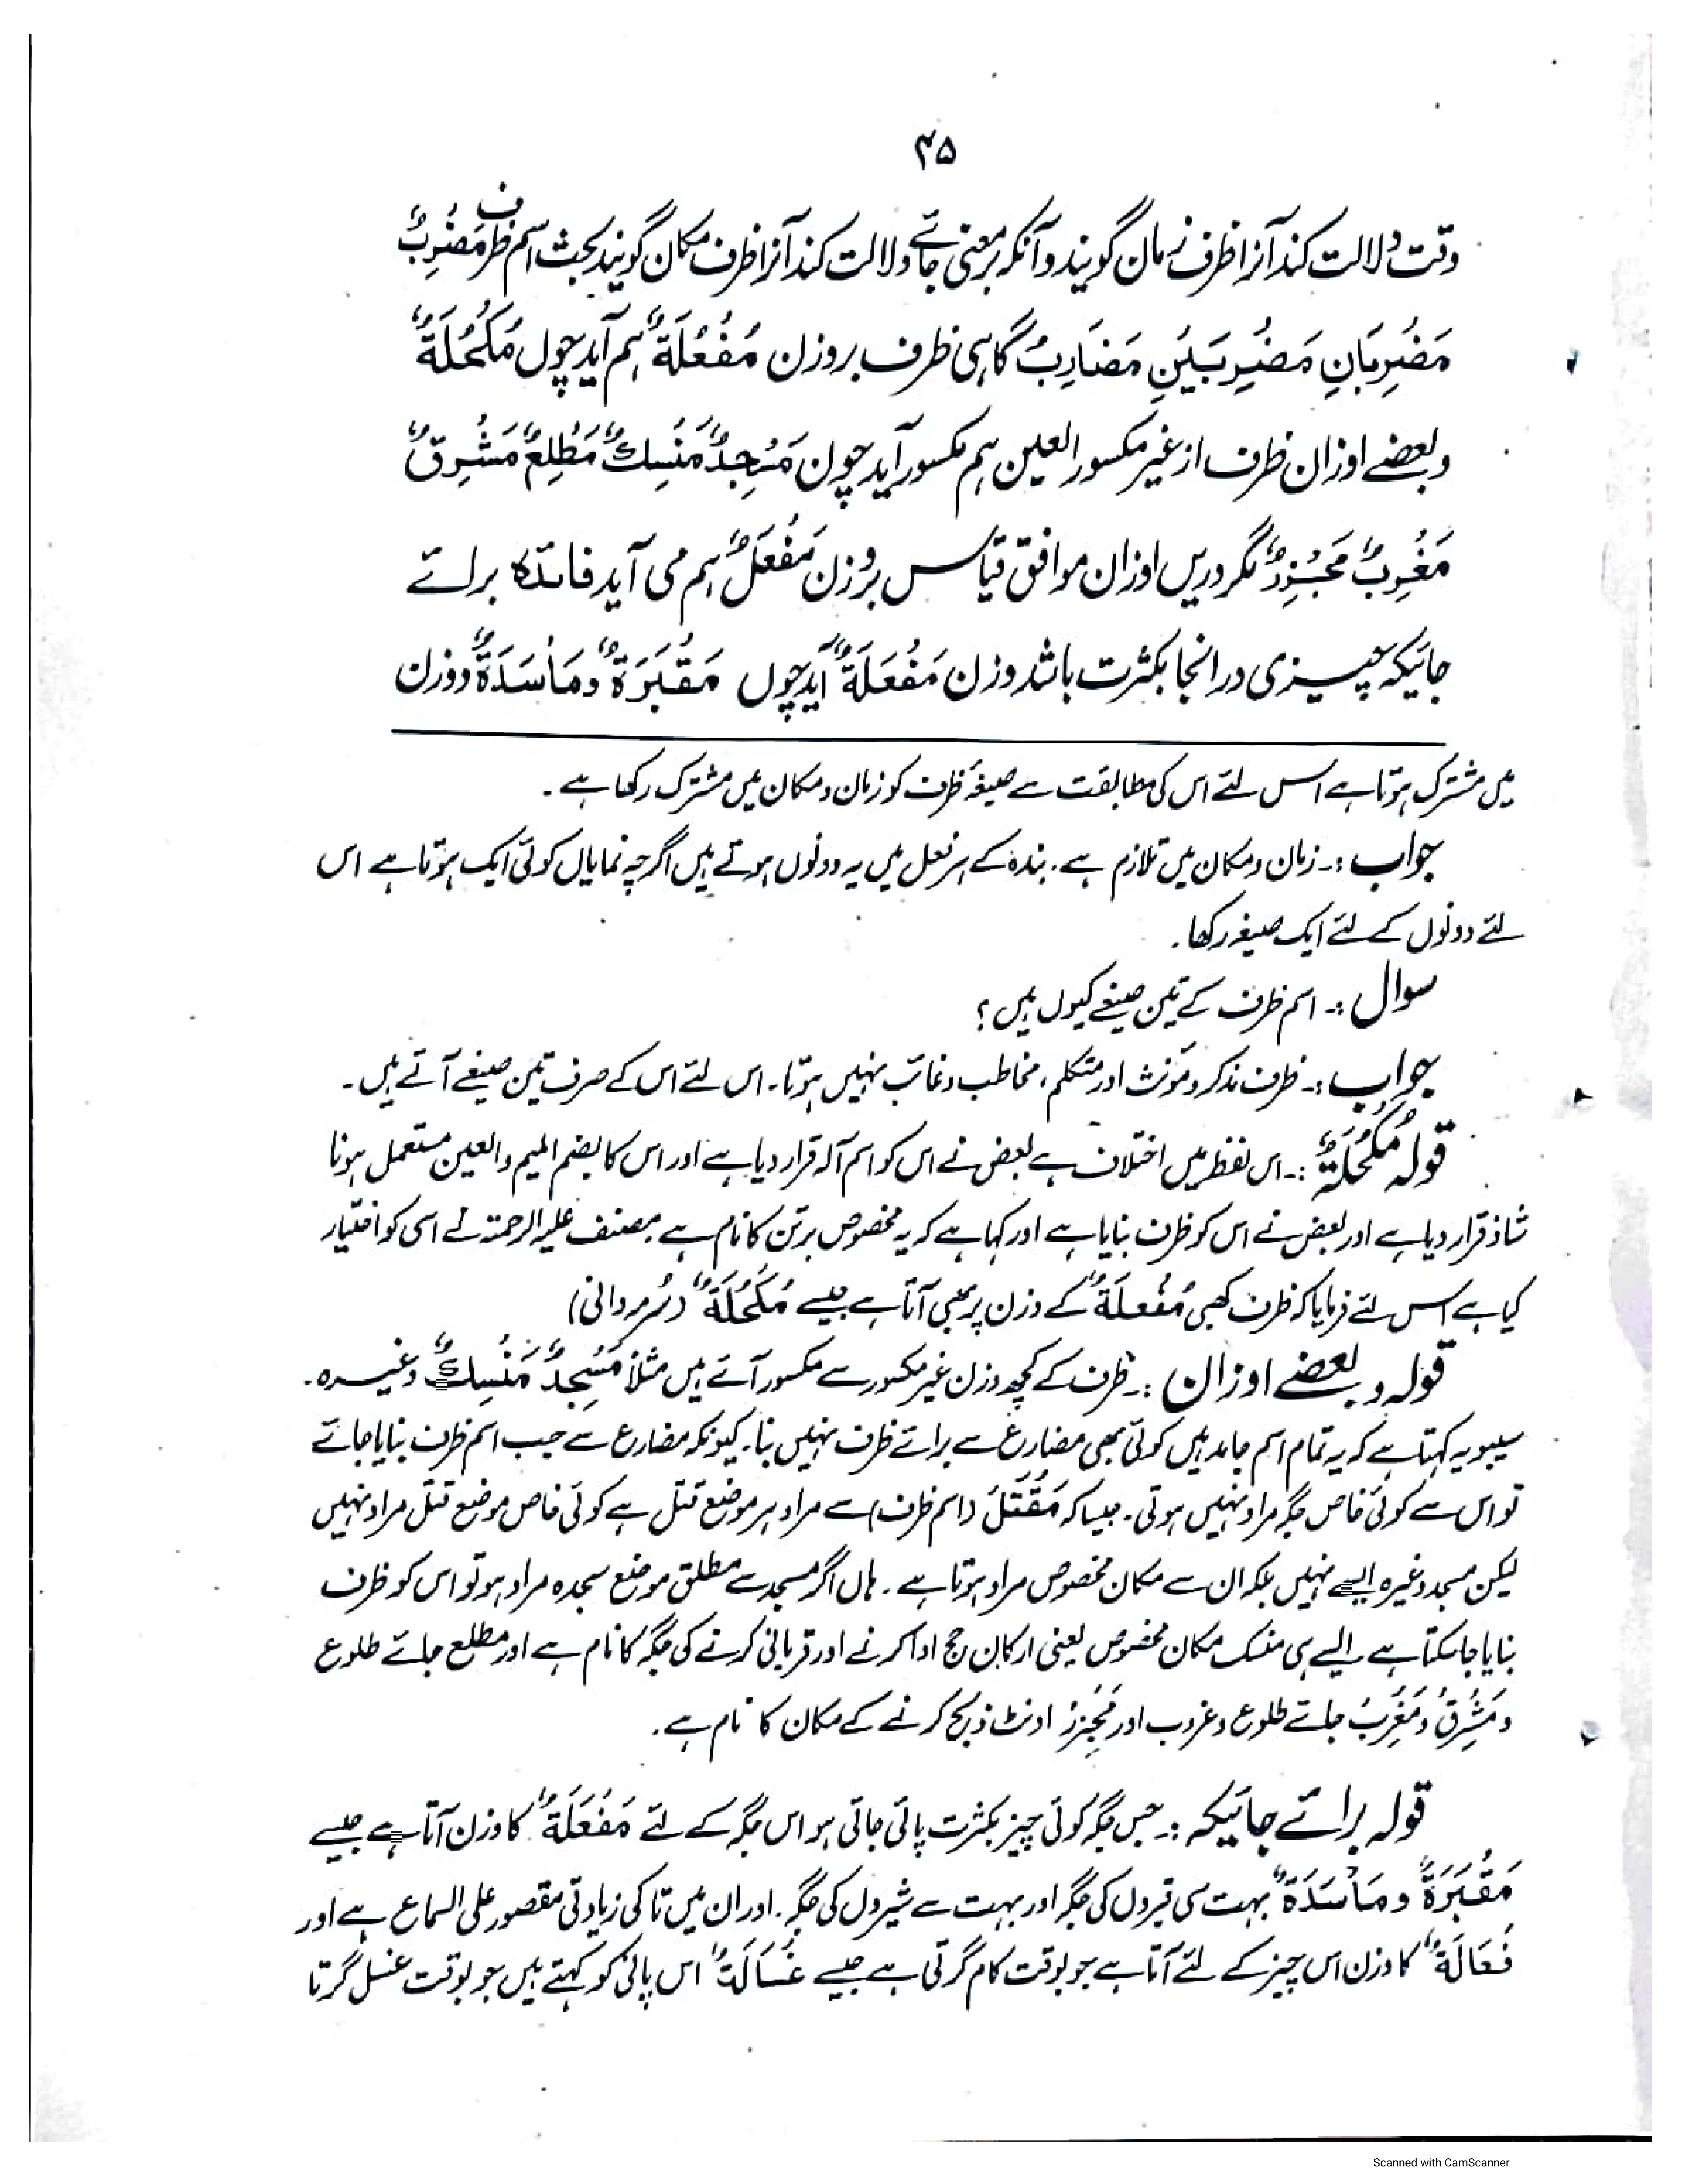 ۴۵
وقت دلالت کند آنرا ظرف زمان گویند و آنکہ بر معنی جائے دلالت کند آنرا ظرف مکان گویند بحث اسم ظرف مَضْرِبٌ
مَضْرِبَانِ مَضْرِبَیْنِ مَضَارِبُ گاہی ظرف بروزن مُفْعُلَةٌ ہم آید چوں مُکْحُلَةٌ
و بعضے اوزان ظرف از غیر مکسور العین ہم مکسور آید چون مَسْجِدٌ مَنْسِكٌ مَطْلِعٌ مَشْرِقٌ
مَغْرِبٌ مَجْزِرٌ مگر دریں اوزان موافق قیاس بروزن مَفْعَلٌ ہم می آید فائدہ برائے
جائیکہ چیزی در انجا بکثرت باشد وزن مَفْعَلَةٌ آید چوں مَقْبَرَةٌ و مَأْسَدَةٌ و وزن
میں مشترک ہوتا ہے اس لئے اس کی مطابقت سے صیغۂ ظرف کو زمان و مکان میں مشترک رکھا ہے ۔
جواب :۔ زمان و مکان میں تلازم ہے ۔ بندہ کے ہر فعل میں یہ دونوں ہوتے ہیں اگرچہ نمایاں کوئی ایک ہوتا ہے اس
لئے دونوں کے لئے ایک صیغہ رکھا ۔
سوال :۔ اسم ظرف کے تین صیغے کیوں ہیں ؟
جواب :۔ ظرف مذکر و مؤنث اور متکلم ، مخاطب و غائب نہیں ہوتا ۔ اس لئے اس کے صرف تین صیغے آتے ہیں ۔
قولہ مُکْحُلَةٌ :۔ اس لفظ میں اختلاف ہے بعض نے اس کو اسم آلہ قرار دیا ہے اور اس کا بضم المیم والعین مستعمل ہونا
شاذ قرار دیا ہے اور بعض نے اس کو ظرف بنایا ہے اور کہا ہے کہ یہ مخصوص برتن کا نام ہے مصنف علیہ الرحمۃ نے اسی کو اختیار
کیا ہے اس لئے فرمایا کہ ظرف کبھی مُفْعُلَةٌ کے وزن پر بھی آتا ہے جیسے مُکْحُلَةٌ (سُرمردانی)
قولہ و بعضے اوزان :۔ ظرف کے کچھ وزن غیر مکسور سے مکسور آتے ہیں مثلاً مَسْجِدٌ مَنْسِكٌ وغیرہ ۔
سیبویہ کہتا ہے کہ یہ تمام اسم جامد ہیں کوئی بھی مضارع سے برائے ظرف نہیں بنا ۔ کیونکہ مضارع سے جب اسم ظرف بنایا جائے
تو اس سے کوئی خاص جگہ مراد نہیں ہوتی ۔ جیسا کہ مَقْتَلٌ (اسم ظرف) سے مراد ہر موضع قتل ہے کوئی خاص موضع قتل مراد نہیں
لیکن مسجد وغیرہ ایسے نہیں بلکہ ان سے مکان مخصوص مراد ہوتا ہے ۔ ہاں اگر مسجد سے مطلق موضع سجدہ مراد ہو تو اس کو ظرف
بنایا جا سکتا ہے ایسے ہی منسک مکان مخصوص یعنی ارکان حج ادا کرنے اور قربانی کرنے کی جگہ کا نام ہے اور مطلع جائے طلوع
و مَشْرِقٌ و مَغْرِبٌ جائے طلوع و غروب اور مَجْزِرٌ اونٹ ذبح کرنے کے مکان کا نام ہے ۔
قولہ برائے جائیکہ :۔ جس جگہ کوئی چیز بکثرت پائی جاتی ہو اس جگہ کے لئے مَفْعَلَةٌ کا وزن آتا ہے جیسے
مَقْبَرَةٌ و مَأْسَدَةٌ بہت سی قبروں کی جگہ اور بہت سے شیروں کی جگہ ۔ اور ان میں تا کی زیادتی مقصور علی السماع ہے اور
فُعَالَةٌ کا وزن اس چیز کے لئے آتا ہے جو بوقت کام گرتی ہے جیسے غُسَالَةٌ اس پانی کو کہتے ہیں جو بوقت غسل گرتا
Scanned with CamScanner